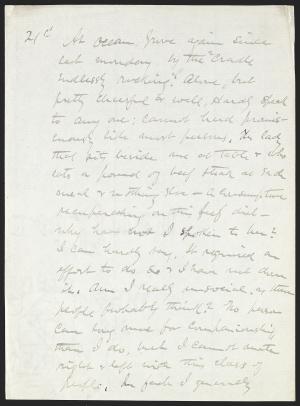 21st At Ocean Grove again since
last monday by the "Cradle
endlessly rocking". Alone, but
pretty cheerful & well. Hardly speak
to any one; cannot herd promis-
cuously like most persons. The lady
that sits beside me at table & who
eats a pound of beef steak at each
meal & nothing else — two
recuperating on this beef diet —
why have not I spoken to her?
I can hardly say. It required an
effort to do so & I have not done
it. Am I really unsocial, as these
people probably think? No person
can long more for companionship
than I do, but I cannot
right & left with this class of
people. In fact I generally